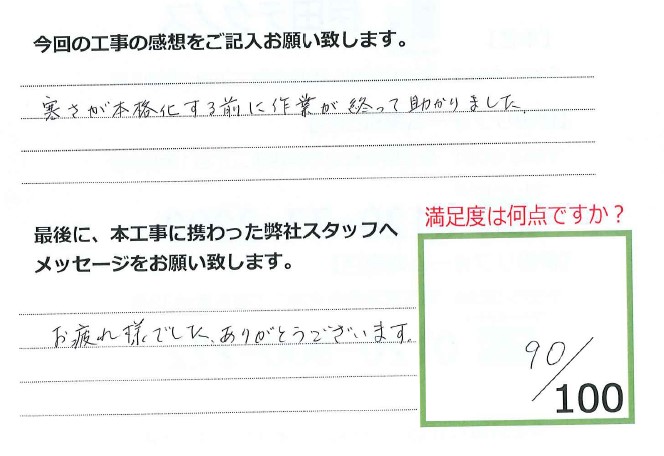 今回の工事の感想をご記入お願い致します。
寒さが本格化する前に作業が終って助かりました。
最後に、本工事に携わった弊社スタッフへ
メッセージをお願い致します。
お疲れ様でした、ありがとうございます。
満足度は何点ですか？
90/100